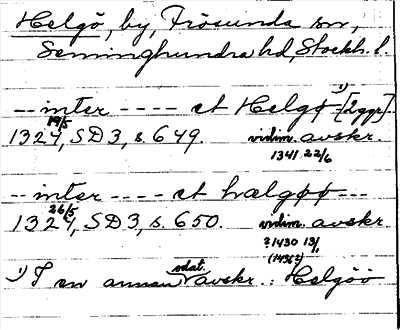 Helgö, by, Frösunda sn,
Seminghundra hd, Stockh. l.
-- inter ---- et Helgø 1) [2 ggr]
19/5
1324, SD 3, s. 649. vidim. avskr.
1341 22/6
-- inter ---- et hælgøø ---
26/5
1324, SD 3, s. 650. vidim. avskr
?1430 13/1
(1436?)
1) I en annan odat. avskr.: Helgöö